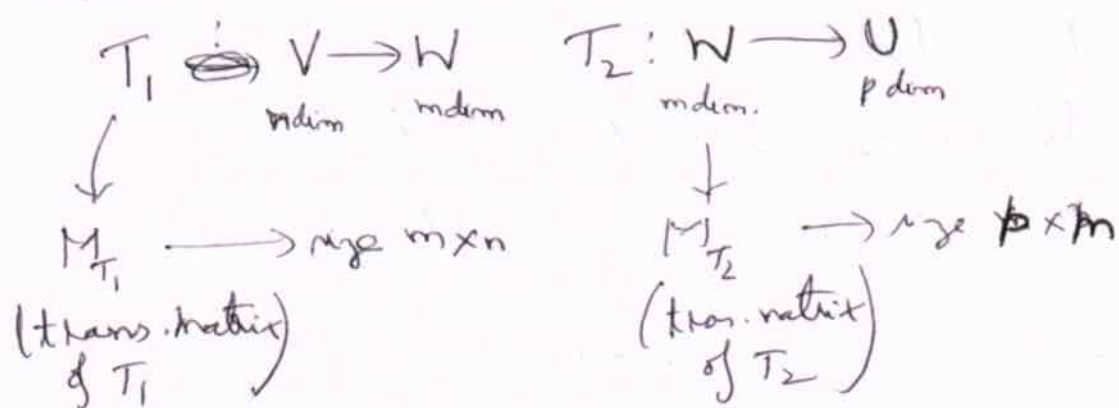 T₁ : V ⟶ W    T₂ : W ⟶ U
n dim    m dim    m dim.    p dim
M_T₁ ⟶ size m×n    M_T₂ ⟶ size p×m
(trans. matrix    (tran. matrix
of T₁)    of T₂)